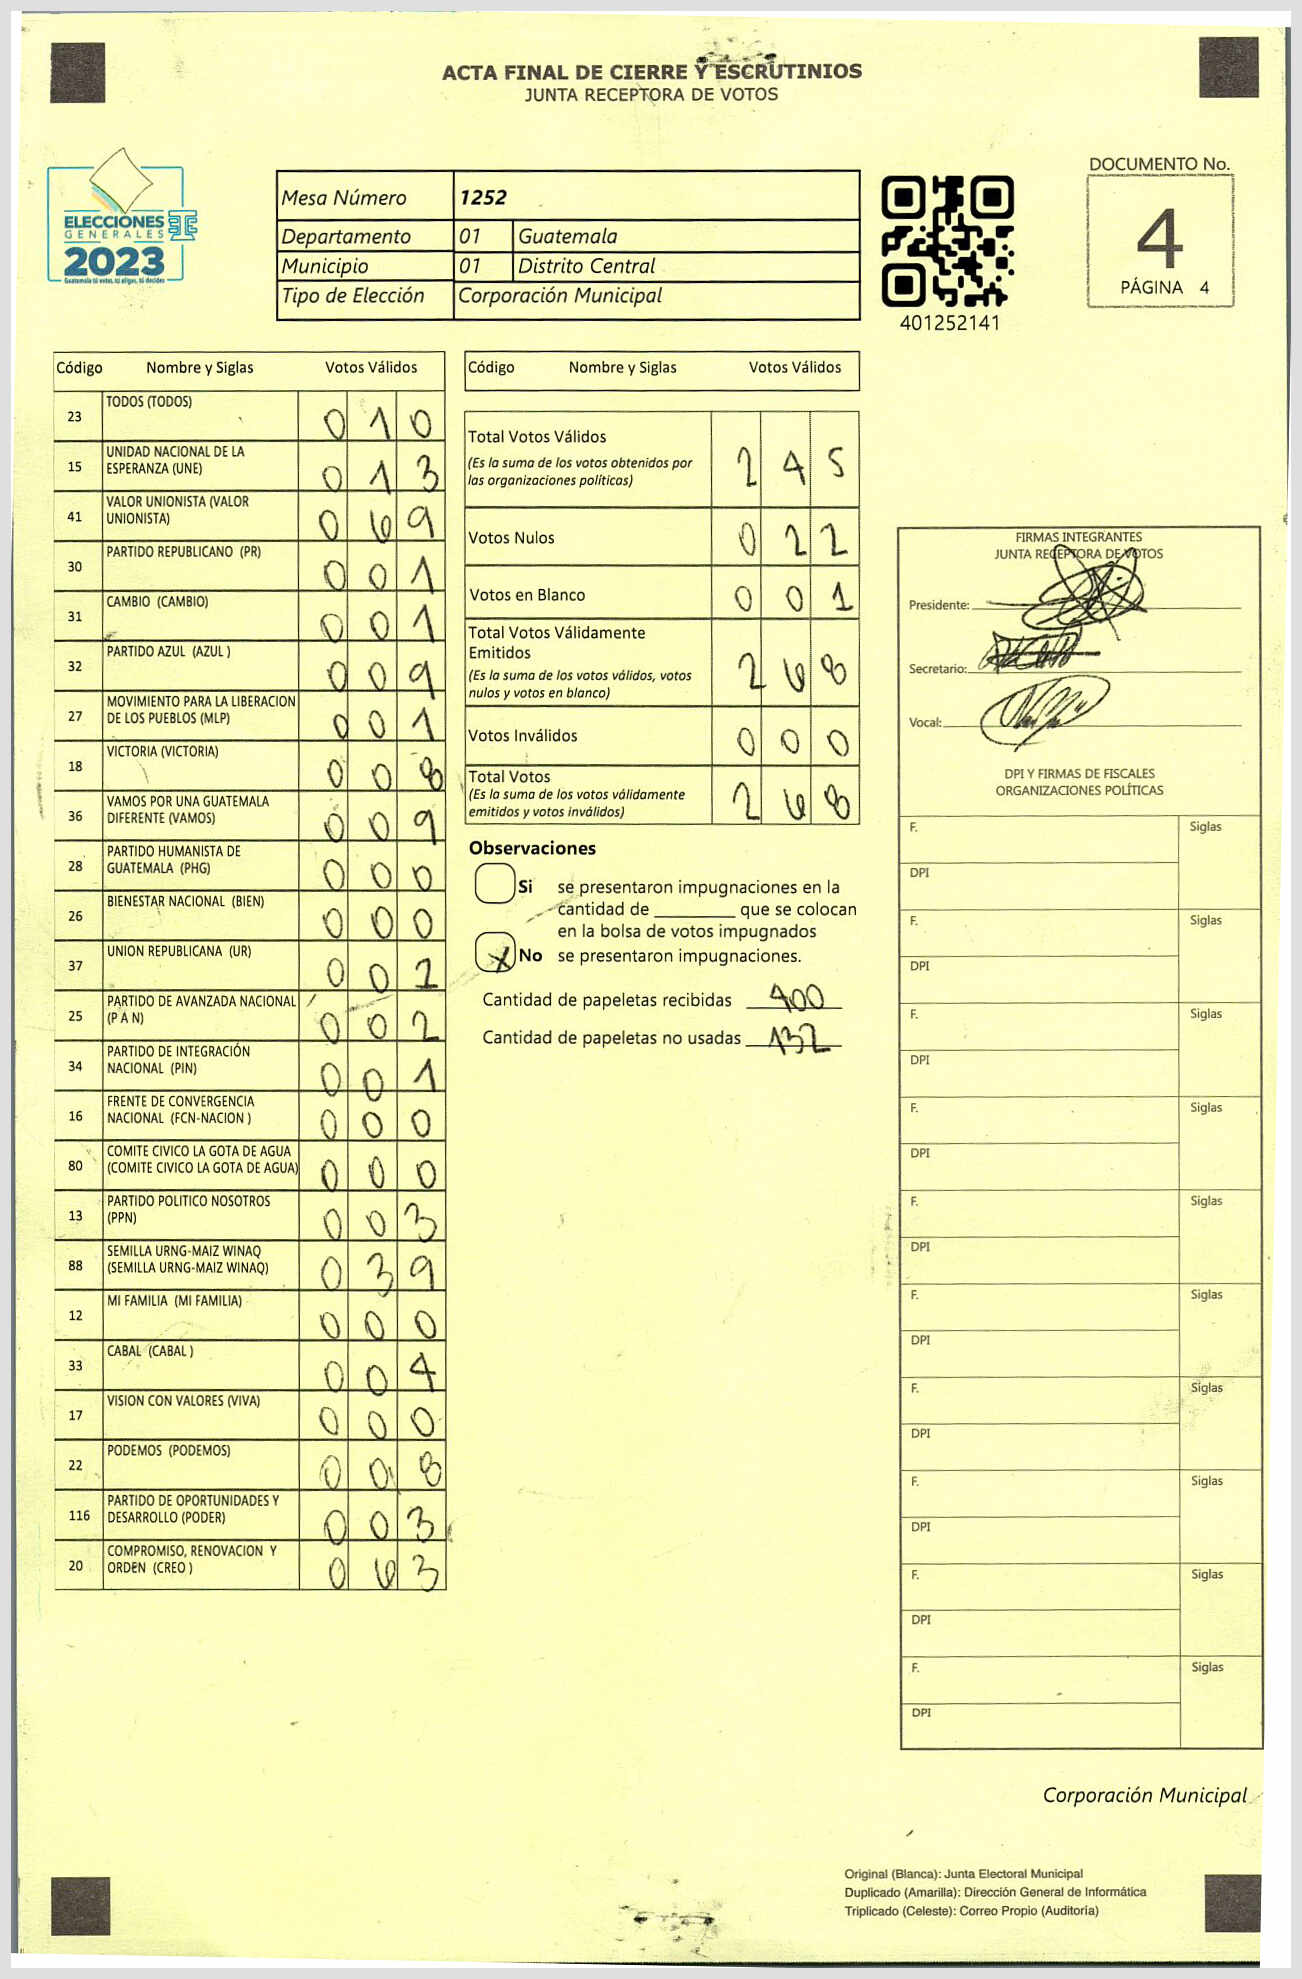 ACTA FINAL DE CIERRE Y ESCRUTINIOS
JUNTA RECEPTORA DE VOTOS
ELECCIONES
GENERALES
2023
Guatemala tú votas, tú eliges, tú decides
Mesa Número 1252
Departamento 01 Guatemala
Municipio 01 Distrito Central
Tipo de Elección Corporación Municipal
401252141
DOCUMENTO No.
4
PÁGINA 4
Código Nombre y Siglas Votos Válidos
23 TODOS (TODOS) 0 1 0
15 UNIDAD NACIONAL DE LA ESPERANZA (UNE) 0 1 3
41 VALOR UNIONISTA (VALOR UNIONISTA) 0 6 9
30 PARTIDO REPUBLICANO (PR) 0 0 1
31 CAMBIO (CAMBIO) 0 0 1
32 PARTIDO AZUL (AZUL ) 0 0 9
27 MOVIMIENTO PARA LA LIBERACION DE LOS PUEBLOS (MLP) 0 0 1
18 VICTORIA (VICTORIA) 0 0 8
36 VAMOS POR UNA GUATEMALA DIFERENTE (VAMOS) 0 0 9
28 PARTIDO HUMANISTA DE GUATEMALA (PHG) 0 0 0
26 BIENESTAR NACIONAL (BIEN) 0 0 0
37 UNION REPUBLICANA (UR) 0 0
25 PARTIDO DE AVANZADA NACIONAL (P A N) 0 0 2
34 PARTIDO DE INTEGRACIÓN NACIONAL (PIN) 0 0 1
16 FRENTE DE CONVERGENCIA NACIONAL (FCN-NACION ) 0 0 0
80 COMITE CIVICO LA GOTA DE AGUA (COMITE CIVICO LA GOTA DE AGUA) 0 0 0
13 PARTIDO POLITICO NOSOTROS (PPN) 0 0 3
88 SEMILLA URNG-MAIZ WINAQ (SEMILLA URNG-MAIZ WINAQ) 0 3 9
12 MI FAMILIA (MI FAMILIA) 0 0 0
33 CABAL (CABAL ) 0 0 4
17 VISION CON VALORES (VIVA) 0 0 0
22 PODEMOS (PODEMOS) 0 0 8
116 PARTIDO DE OPORTUNIDADES Y DESARROLLO (PODER) 0 0 3
20 COMPROMISO, RENOVACION Y ORDEN (CREO ) 0 6 3
Código Nombre y Siglas Votos Válidos
Total Votos Válidos 2 4 5
(Es la suma de los votos obtenidos por
las organizaciones políticas)
Votos Nulos 0 2 2
Votos en Blanco 0 0 1
Total Votos Válidamente
Emitidos 2 6 8
(Es la suma de los votos válidos, votos
nulos y votos en blanco)
Votos Inválidos 0 0 0
Total Votos 2 6 8
(Es la suma de los votos válidamente
emitidos y votos inválidos)
Observaciones
Si se presentaron impugnaciones en la
cantidad de ________ que se colocan
en la bolsa de votos impugnados
X No se presentaron impugnaciones.
Cantidad de papeletas recibidas 400
Cantidad de papeletas no usadas 132
FIRMAS INTEGRANTES
JUNTA RECEPTORA DE VOTOS
Presidente:
Secretario:
Vocal:
DPI Y FIRMAS DE FISCALES
ORGANIZACIONES POLÍTICAS
F. Siglas
DPI
F. Siglas
DPI
F. Siglas
DPI
F. Siglas
DPI
F. Siglas
DPI
F. Siglas
DPI
F. Siglas
DPI
F. Siglas
DPI
F. Siglas
DPI
F. Siglas
DPI
Corporación Municipal
Original (Blanca): Junta Electoral Municipal
Duplicado (Amarilla): Dirección General de Informática
Triplicado (Celeste): Correo Propio (Auditoría)